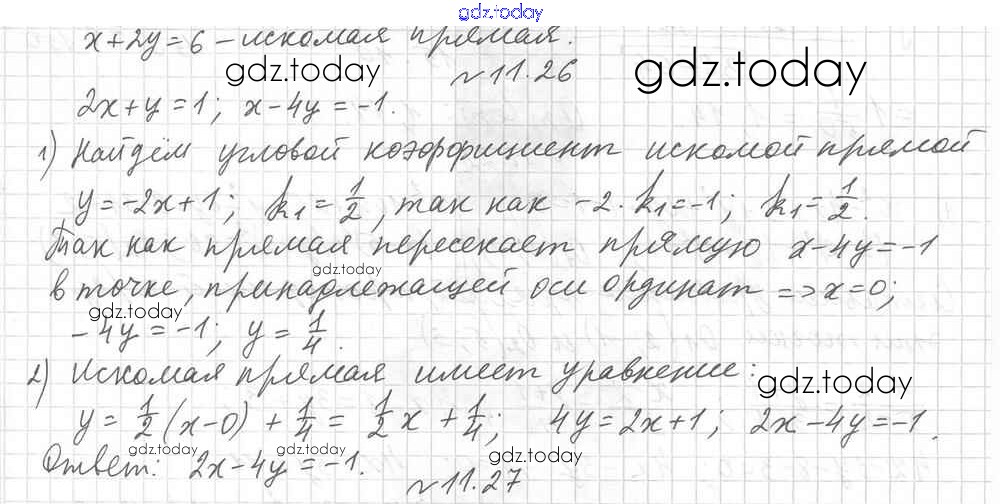 gdz.today
x+2y=6 – искомая прямая.
gdz.today
gdz.today
№11.26
2x+y=1; x-4y=-1.
1) Найдём угловой коэффициент искомой прямой
y=-2x+1; k₁=1/2, так как -2·k₁=-1; k₁=1/2.
Так как прямая пересекает прямую x-4y=-1
gdz.today
в точке, принадлежащей оси ординат => x=0;
gdz.today
-4y=-1; y=1/4.
2) Искомая прямая имеет уравнение:
gdz.today
y=1/2(x-0)+1/4=1/2x+1/4; 4y=2x+1; 2x-4y=-1.
gdz.today
gdz.today
Ответ: 2x-4y=-1.
№11.27